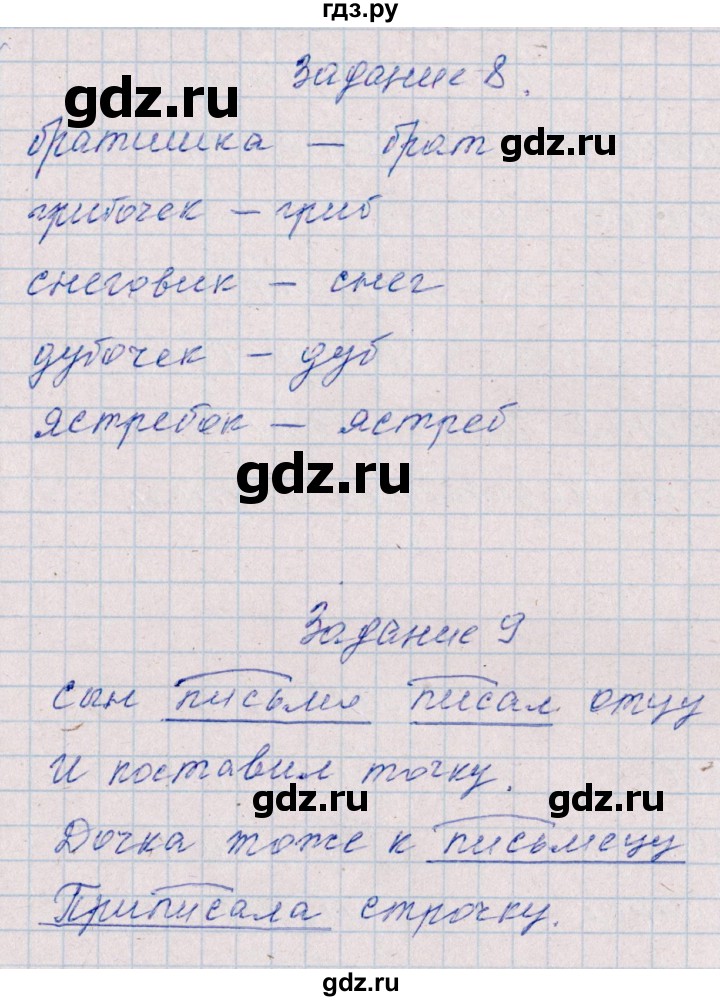 гдз.ру
Задание 8.
gdz.ru
братишка — брат
gdz.ru
грибочек — гриб
снеговик — снег
дубочек — дуб
ястребок — ястреб
gdz.ru
Задание 9
сын письмо писал отцу
И поставил точку.
gdz.ru
gdz.ru
Дочка тоже к письмецу
Приписала строчку.
gdz.ru